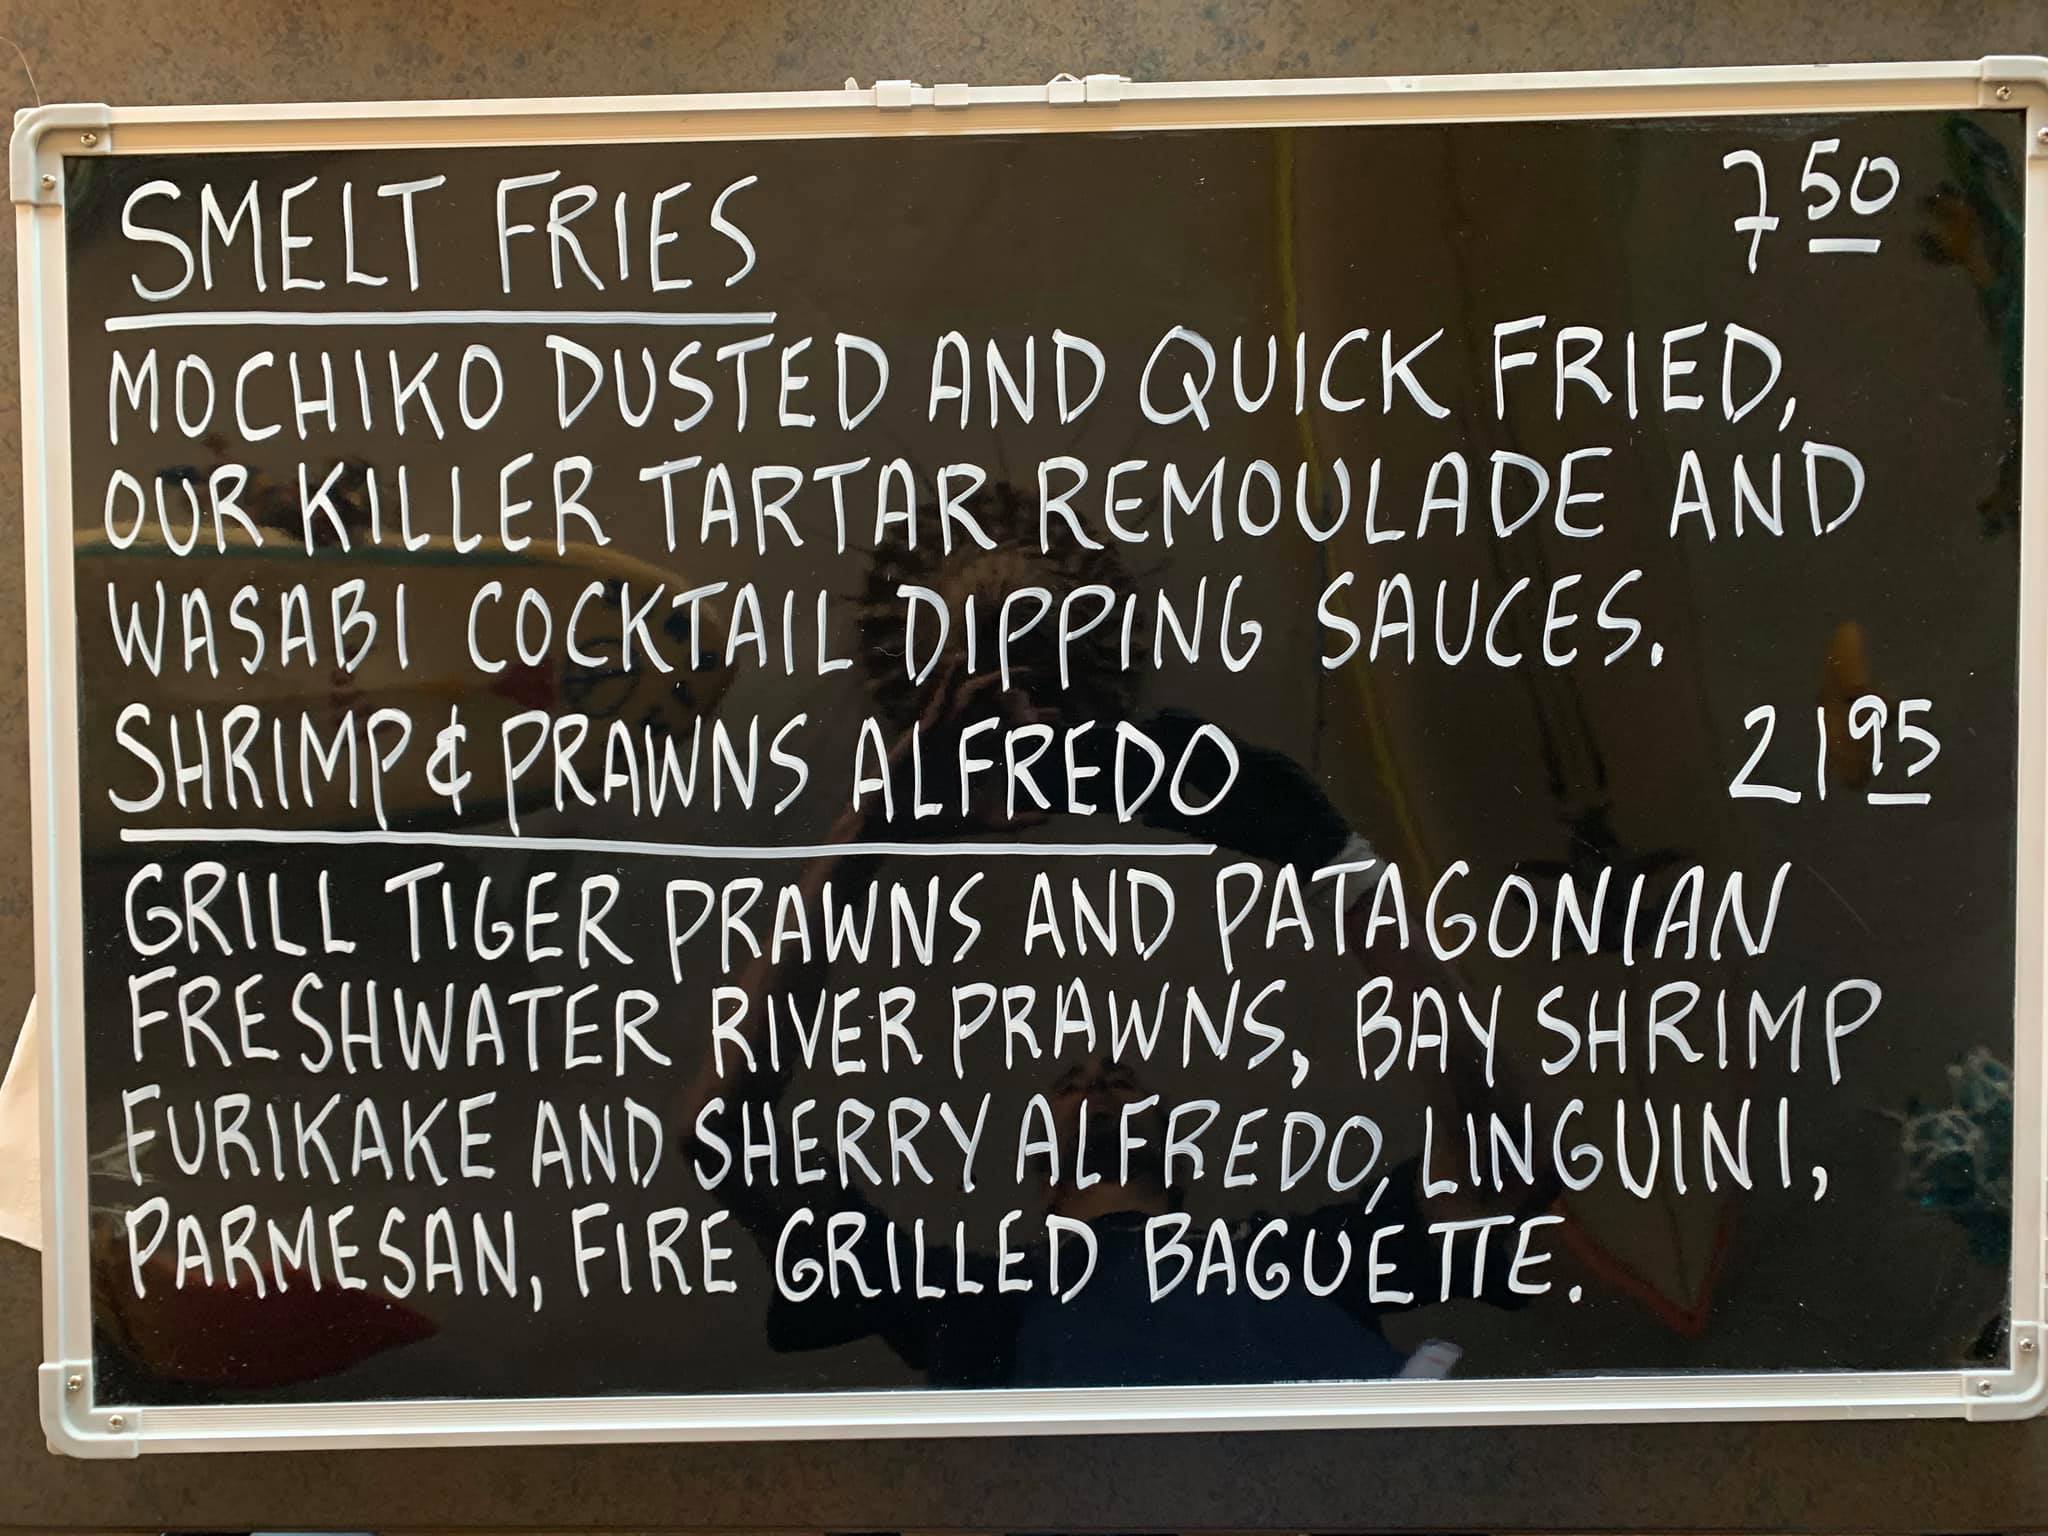 SMELT FRIES 7 50
MOCHIKO DUSTED AND QUICK FRIED,
OUR KILLER TARTAR REMOULADE AND
WASABI COCKTAIL DIPPING SAUCES.
SHRIMP & PRAWNS ALFREDO 21 95
GRILL TIGER PRAWNS AND PATAGONIAN
FRESHWATER RIVER PRAWNS, BAY SHRIMP
FURIKAKE AND SHERRY ALFREDO, LINGUINI,
PARMESAN, FIRE GRILLED BAGUÉTTE.